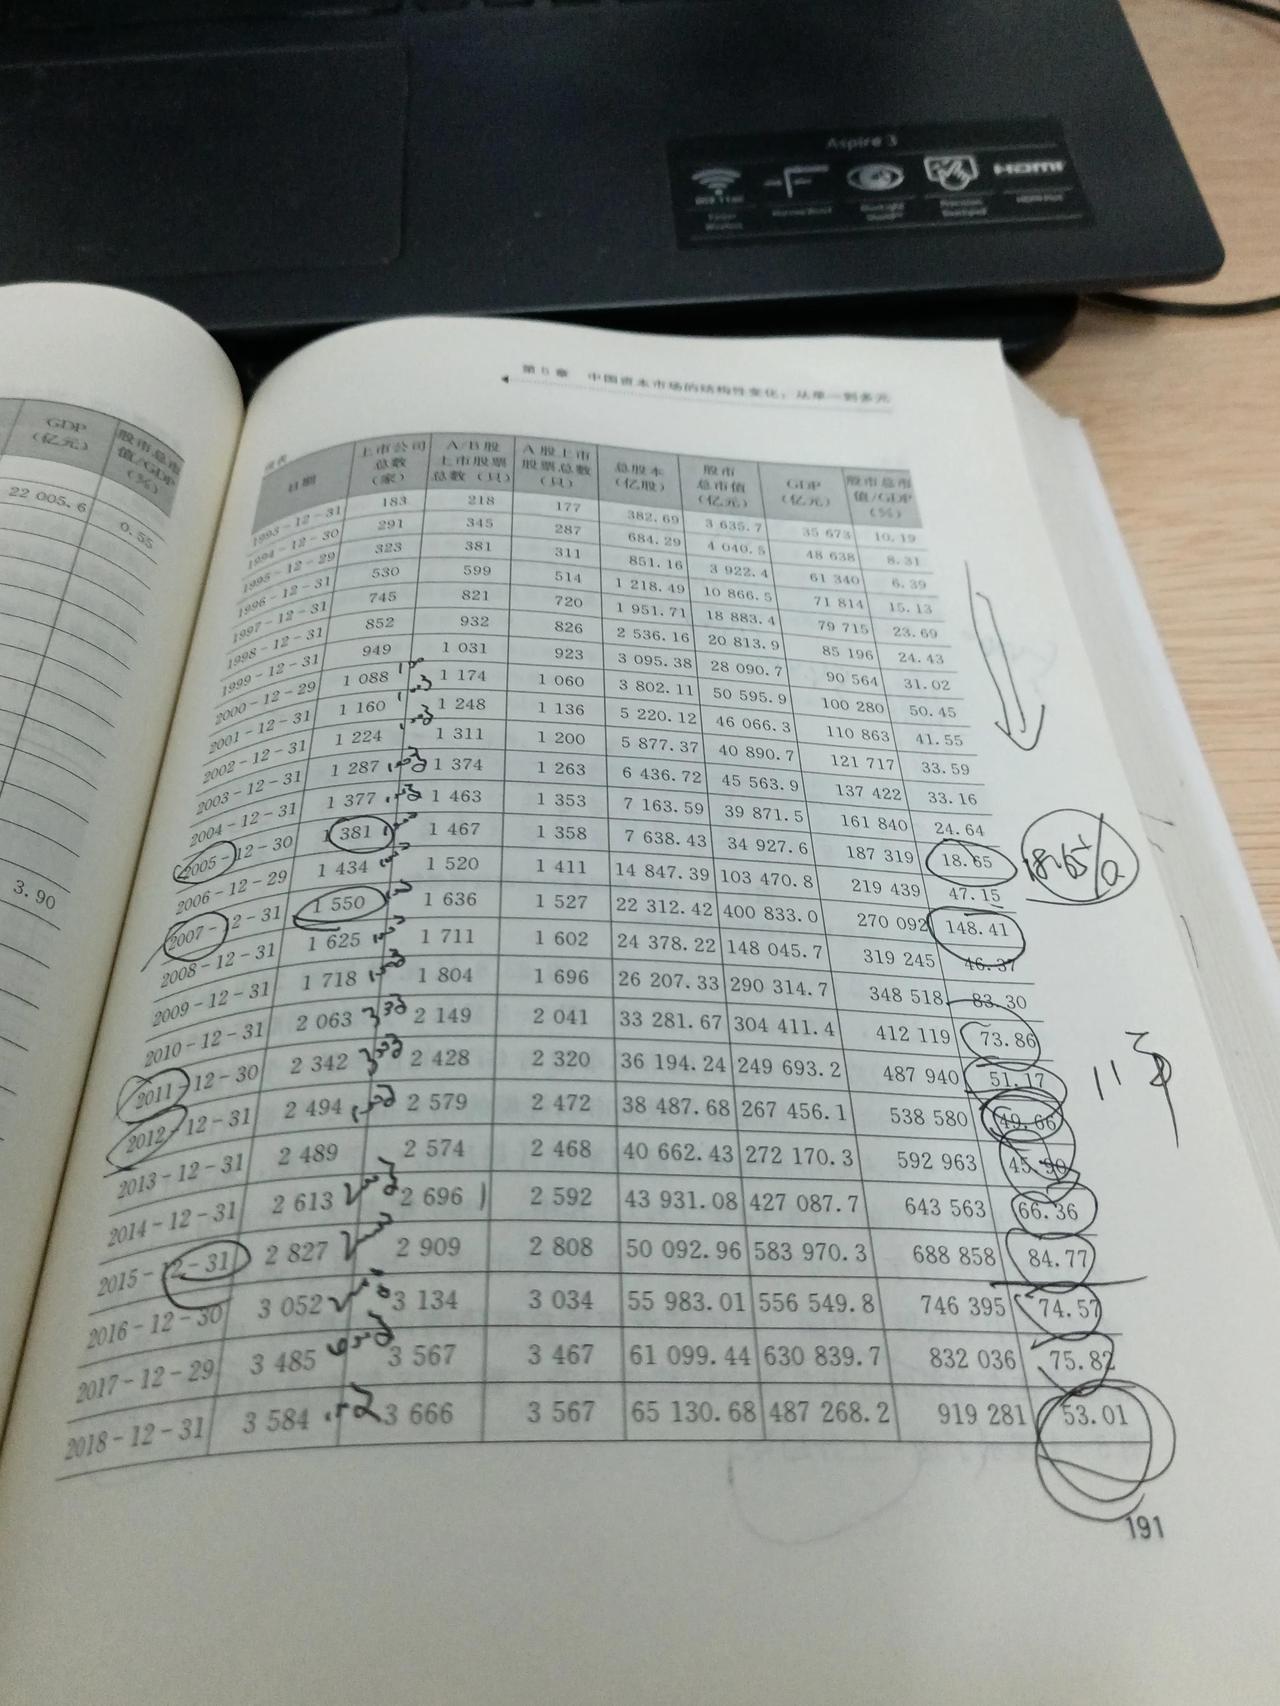 Aspire 3
HDMI
第5章 中国资本市场的结构性变化：从单一到多元
GDP（亿元） 股市总市值/GDP（%）
22 005.6 0.55
3.90
续表
日期 上市公司总数（家） A/B股上市股票总数（只） A股上市股票总数（只） 总股本（亿股） 股市总市值（亿元） GDP（亿元） 股市总市值/GDP（%）
1993-12-31 183 218 177 382.69 3 635.7 35 673 10.19
1994-12-30 291 345 287 684.29 4 040.5 48 638 8.31
1995-12-29 323 381 311 851.16 3 922.4 61 340 6.39
1996-12-31 530 599 514 1 218.49 10 866.5 71 814 15.13
1997-12-31 745 821 720 1 951.71 18 883.4 79 715 23.69
1998-12-31 852 932 826 2 536.16 20 813.9 85 196 24.43
1999-12-31 949 1 031 923 3 095.38 28 090.7 90 564 31.02
2000-12-29 1 088 1 174 1 060 3 802.11 50 595.9 100 280 50.45
2001-12-31 1 160 1 248 1 136 5 220.12 46 066.3 110 863 41.55
2002-12-31 1 224 1 311 1 200 5 877.37 40 890.7 121 717 33.59
2003-12-31 1 287 1 374 1 263 6 436.72 45 563.9 137 422 33.16
2004-12-31 1 377 1 463 1 353 7 163.59 39 871.5 161 840 24.64
2005-12-30 1 381 1 467 1 358 7 638.43 34 927.6 187 319 18.65
2006-12-29 1 434 1 520 1 411 14 847.39 103 470.8 219 439 47.15
2007-12-31 1 550 1 636 1 527 22 312.42 400 833.0 270 092 148.41
2008-12-31 1 625 1 711 1 602 24 378.22 148 045.7 319 245 46.37
2009-12-31 1 718 1 804 1 696 26 207.33 290 314.7 348 518 83.30
2010-12-31 2 063 2 149 2 041 33 281.67 304 411.4 412 119 73.86
2011-12-30 2 342 2 428 2 320 36 194.24 249 693.2 487 940 51.17
2012-12-31 2 494 2 579 2 472 38 487.68 267 456.1 538 580 49.66
2013-12-31 2 489 2 574 2 468 40 662.43 272 170.3 592 963 45.90
2014-12-31 2 613 2 696 2 592 43 931.08 427 087.7 643 563 66.36
2015-12-31 2 827 2 909 2 808 50 092.96 583 970.3 688 858 84.77
2016-12-30 3 052 3 134 3 034 55 983.01 556 549.8 746 395 74.57
2017-12-29 3 485 3 567 3 467 61 099.44 630 839.7 832 036 75.82
2018-12-31 3 584 3 666 3 567 65 130.68 487 268.2 919 281 53.01
191